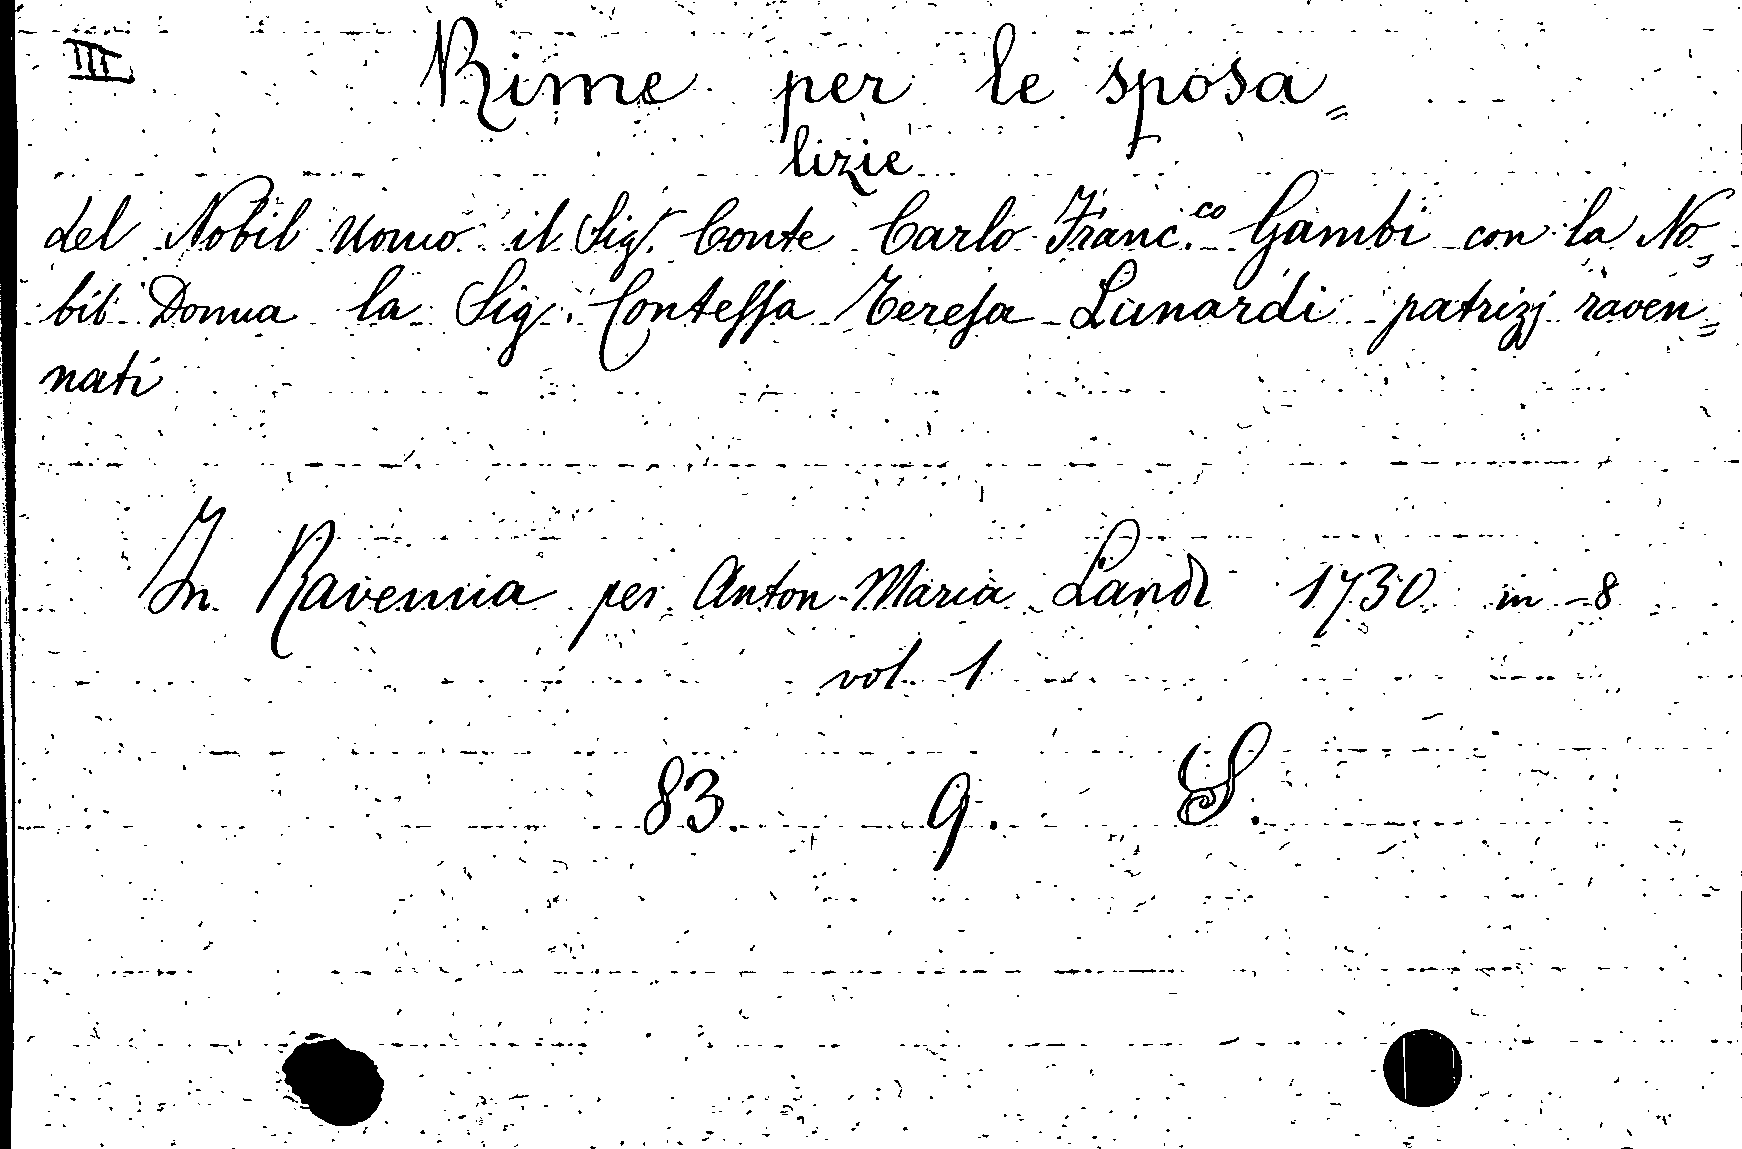 III Rime per le sposa=
lizie
del Nobil Uomo il Sig.r Conte Carlo Franc.co Gambi con la No=
bil Donna la Sig. Conteſſa Tereſa Lunardi patrizj raven=
nati
In Ravenna per Anton-Maria Landi 1730 in-8
vol. 1
83. 9. S.